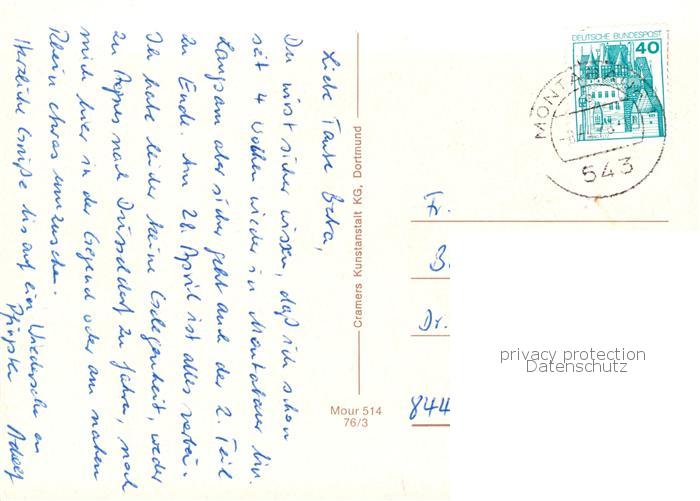 Liebe Tante Berta,
Du wirst sicher wissen, daß ich schon
seit 4 Wochen wieder in Montabaur bin.
Langsam aber sicher geht auch der 2. Teil
zu Ende. Am 28. April ist alles vorbei.
Ich habe leider keine Gelegenheit, weder
zu Magnus nach Düsseldorf zu fahren, noch
mich hier in der Gegend oder am nahen
Rhein etwas umzusehen.
Herzliche Grüße bis auf ein Wiedersehen an
Pfingsten
Cramers Kunstanstalt KG, Dortmund
Mour 514
76/3
DEUTSCHE BUNDESPOST
40
MONTABAUR
543
Fr.
B.
Dr.
844
privacy protection
Datenschutz